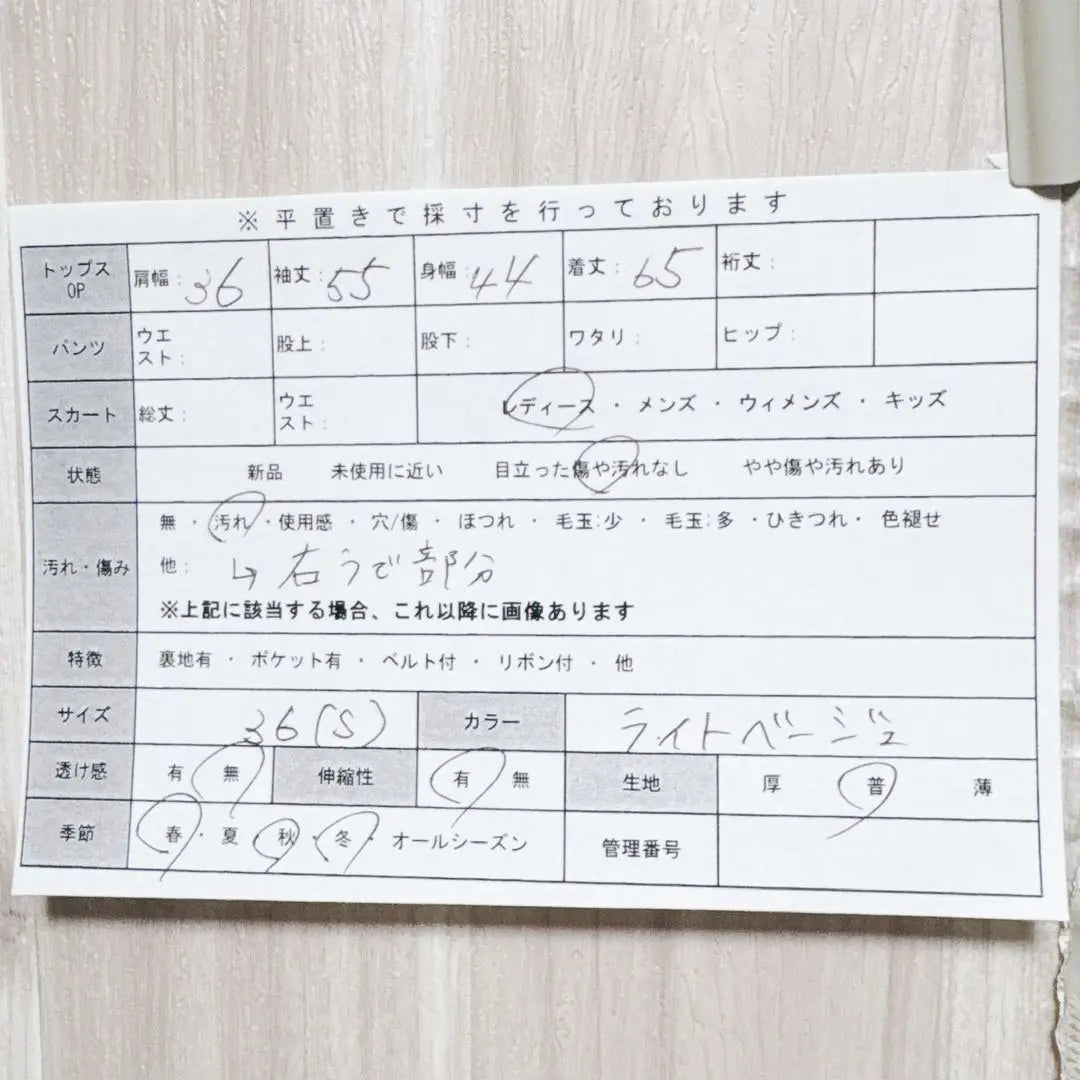 ※平置きで採寸を行っております
トップス OP 肩幅: 36 袖丈: 55 身幅: 44 着丈: 65 裄丈:
パンツ ウエスト: 股上: 股下: ワタリ: ヒップ:
スカート 総丈: ウエスト: レディース ・ メンズ ・ ウィメンズ ・ キッズ
状態 新品 未使用に近い 目立った傷や汚れなし やや傷や汚れあり
汚れ・傷み 無 ・ 汚れ ・ 使用感 ・ 穴/傷 ・ ほつれ ・ 毛玉:少 ・ 毛玉:多 ・ ひきつれ ・ 色褪せ
他: ↳ 右うで部分
※上記に該当する場合、これ以降に画像あります
特徴 裏地有 ・ ポケット有 ・ ベルト付 ・ リボン付 ・ 他
サイズ 36(S) カラー ライトベージュ
透け感 有 無 伸縮性 有 無 生地 厚 普 薄
季節 春 ・ 夏 ・ 秋 ・ 冬 ・ オールシーズン 管理番号